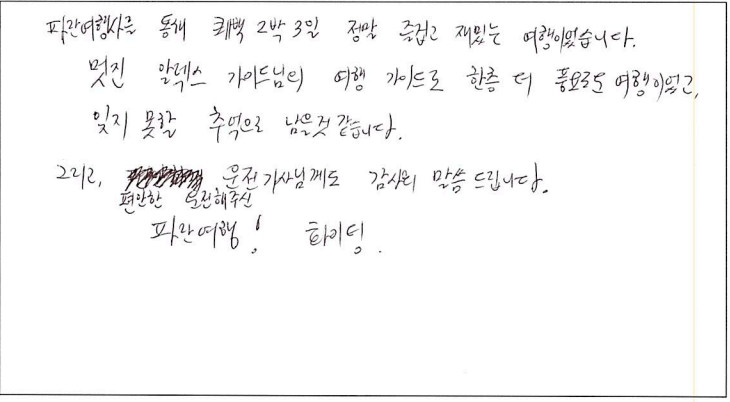 파란여행사를 통해 퀘백 2박 3일 정말 즐겁고 재밌는 여행이었습니다.
멋진 알렉스 가이드님의 여행 가이드로 한층 더 풍요로운 여행이었고,
잊지 못할 추억으로 남을것 같습니다.
그리고, 운전기사님께도 감사의 말씀 드립니다.
편안한 운전해주신
파란여행! 화이팅.